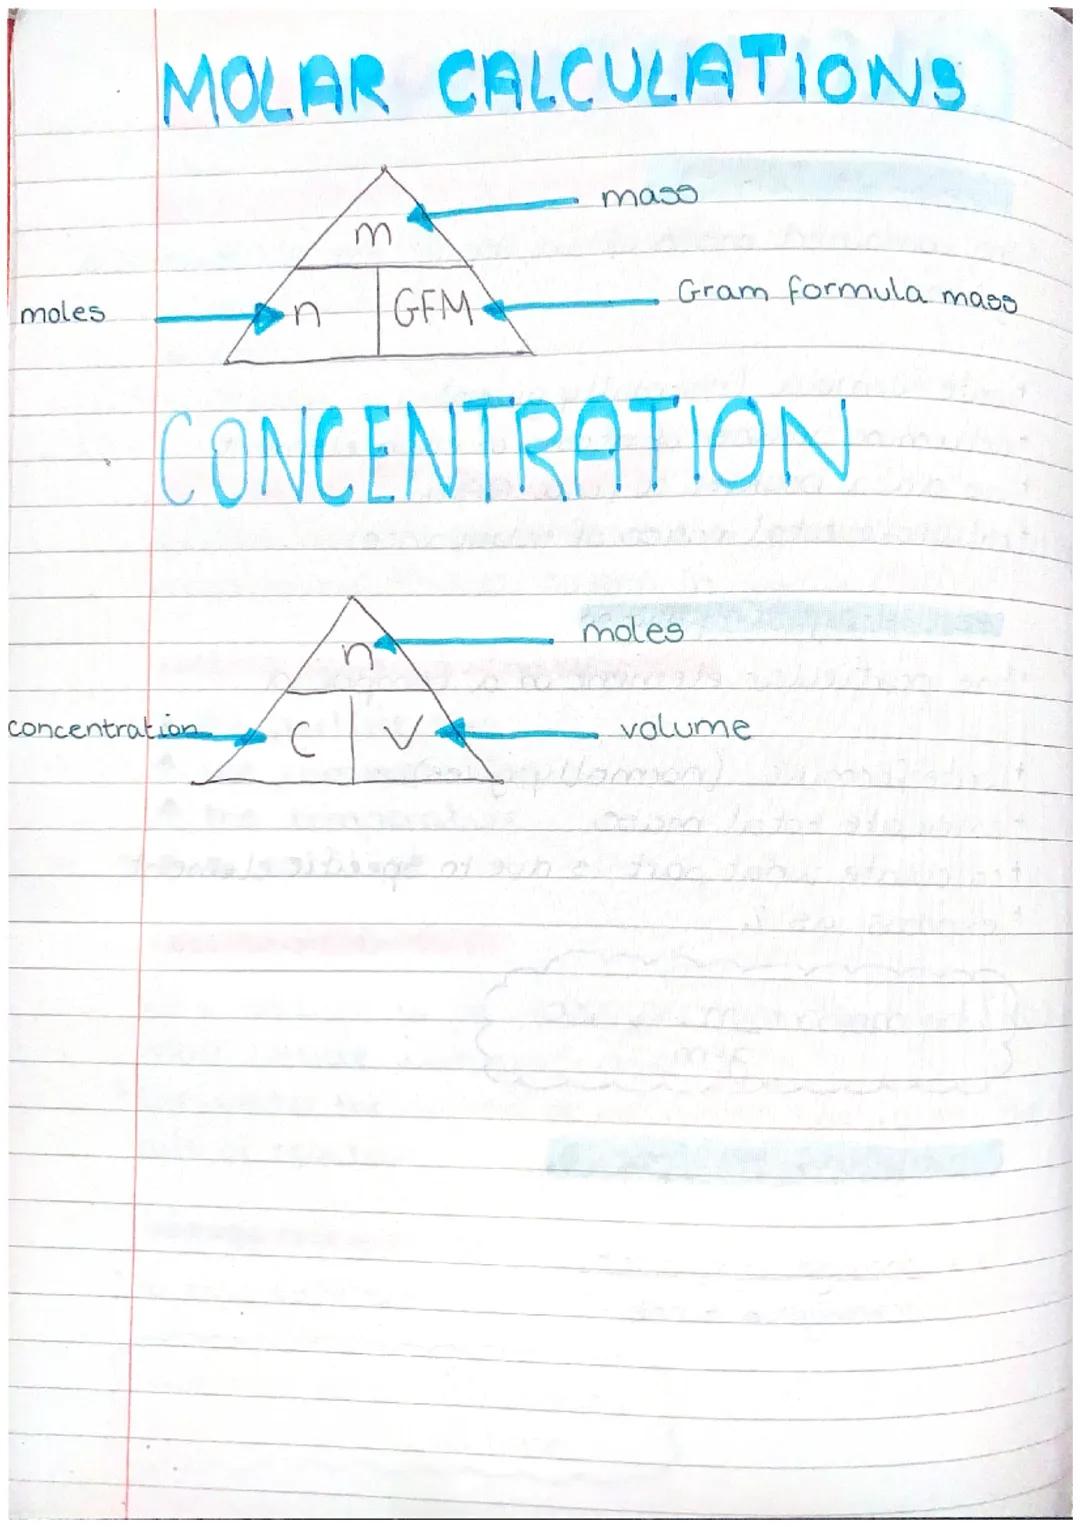 MOLAR CALCULATIONS
mass
m
Gram formula mass
moles
n GFM
CONCENTRATION
moles
n
concentration
C V
volume